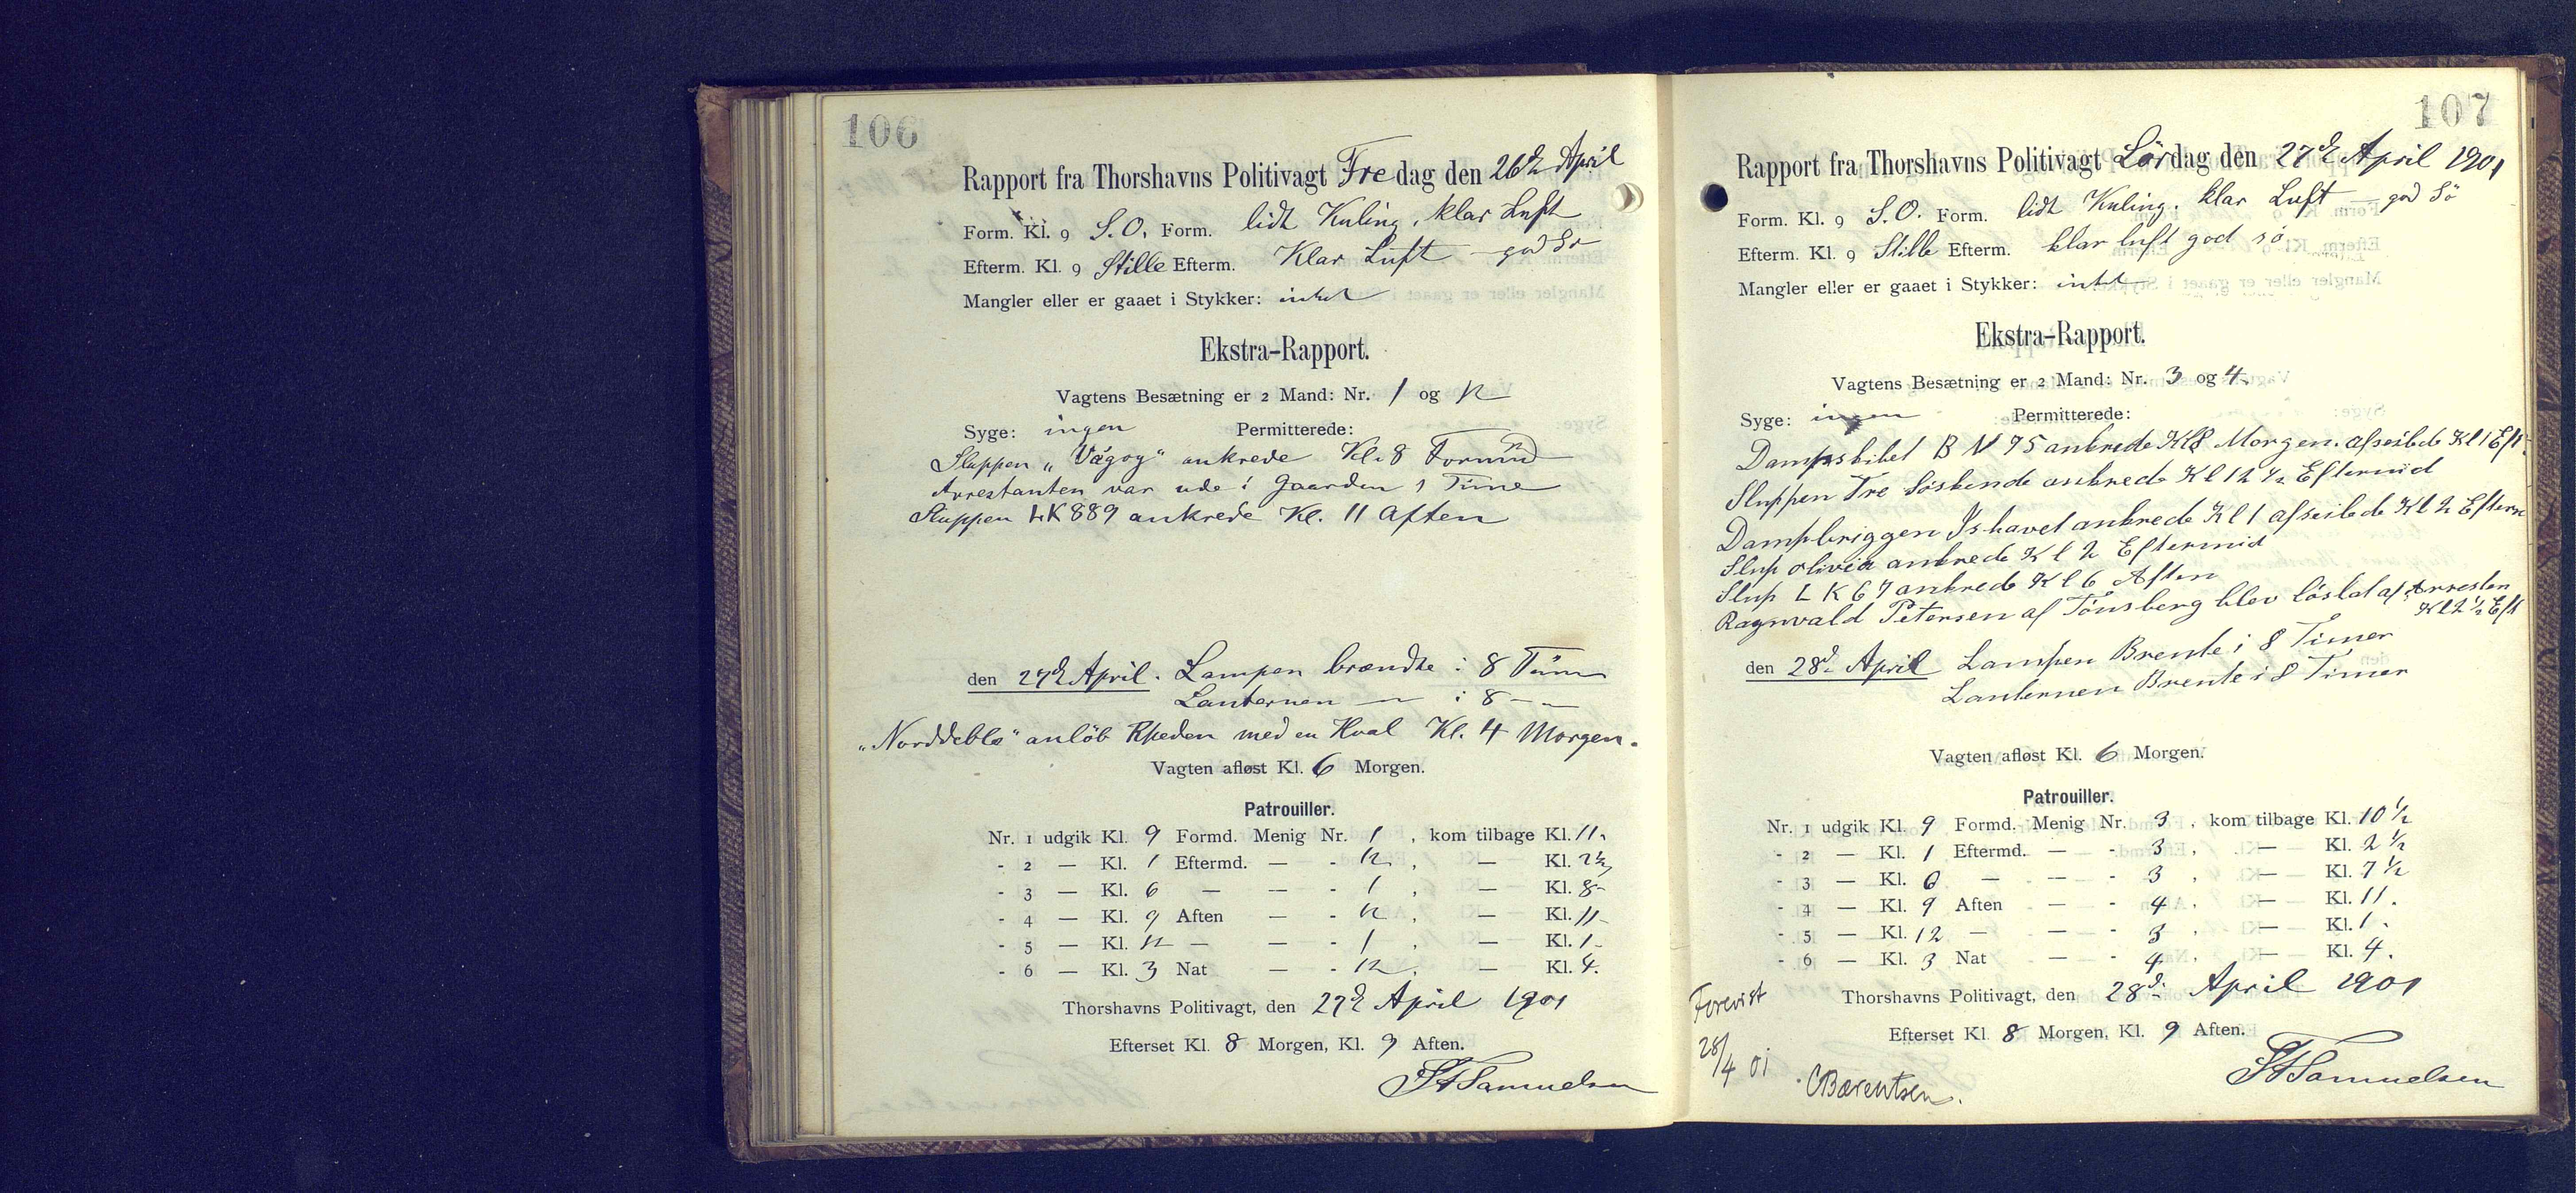 106
Rapport fra Thorshavns Politivagt Fredag den 26d April
Form. Kl. 9 S.O. Form. lidt Kuling. klar Luft
Efterm. Kl. 9 Stille Efterm. Klar Luft – god Sø
Mangler eller er gaaet i Stykker: intet
Ekstra-Rapport.
Vagtens Besætning er 2 Mand: Nr. 1 og 12
Syge: ingen Permitterede:
Sluppen „Vágoy" ankrede Kl. 8 Formd
Arrestanten var ude i Gaarden 1 Time
Sluppen LK 889 ankrede Kl. 11 Aften
den 27d April. Lampen brændte i 8 Tim
Lanternen — i 8 –
„Norddeble" anlöb Rheden med en Hval Kl. 4 Morgen.
Vagten afløst Kl. 6 Morgen.
Patrouiller.
Nr. 1 udgik Kl. 9 Formd. Menig Nr. 1, kom tilbage Kl. 11.
- 2 — Kl. 1 Eftermd. — - 12, — Kl. 2½
- 3 — Kl. 6 — — - 1, — Kl. 8-
- 4 — Kl. 9 Aften — - 12, — Kl. 11-
- 5 — Kl. 12 — — - 1, — Kl. 1-
- 6 — Kl. 3 Nat — - 12, — Kl. 4.
Thorshavns Politivagt, den 27d April 1901
Efterset Kl. 8 Morgen, Kl. 9 Aften.
Samuelsen
107
Rapport fra Thorshavns Politivagt Lördag den 27d April 1901
Form. Kl. 9 S.O. Form. lidt Kuling. klar Luft – god Sö
Efterm. Kl. 9 Stille Efterm. klar luft god sö
Mangler eller er gaaet i Stykker: intet
Ekstra-Rapport.
Vagtens Besætning er 2 Mand: Nr. 3 og 4.
Syge: ingen Permitterede:
Dampskibet B N 75 ankrede Kl 8 Morgen. afseilede Kl 1 Eft.
Sluppen Tre Söskende ankrede Kl 12½ Eftermid
Dampbriggen Ishavet ankrede Kl 1 afseilede Kl 2 Efterm
Slup olivia ankrede Kl 2 Eftermid
Slup L K 67 ankrede Kl 6 Aften
Ragnvald Petersen af Tönsberg blev löslat af Arresten
Kl 2½ Eft
den 28d April Lampen Brente i 8 Timer
Lanternen Brente i 8 Timer
Vagten afløst Kl. 6 Morgen.
Patrouiller.
Nr. 1 udgik Kl. 9 Formd. Menig Nr. 3, kom tilbage Kl. 10½
- 2 — Kl. 1 Eftermd. — - 3, — Kl. 2½
- 3 — Kl. 6 — — - 3, — Kl. 7½
- 4 — Kl. 9 Aften — - 4, — Kl. 11.
- 5 — Kl. 12 — — - 3, — Kl. 1.
- 6 — Kl. 3 Nat — - 4, — Kl. 4.
Thorshavns Politivagt, den 28d April 1901
Efterset Kl. 8 Morgen, Kl. 9 Aften.
Samuelsen
Forevist
28/4 01
CBærentsen.